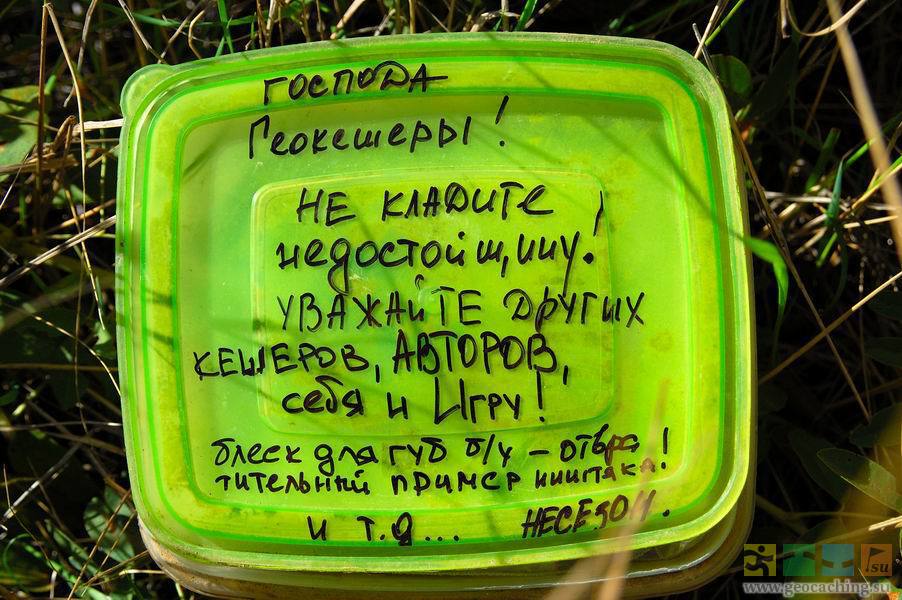 ГОСПОДА
Геокешеры!
НЕ КЛАДИТЕ
недостойщину!
УВАЖАЙТЕ ДРУГИХ
КЕШЕРОВ, АВТОРОВ,
себя и Игру!
блеск для губ б/у – отвра
тительный пример !
и т.д...
su
www.geocaching.su